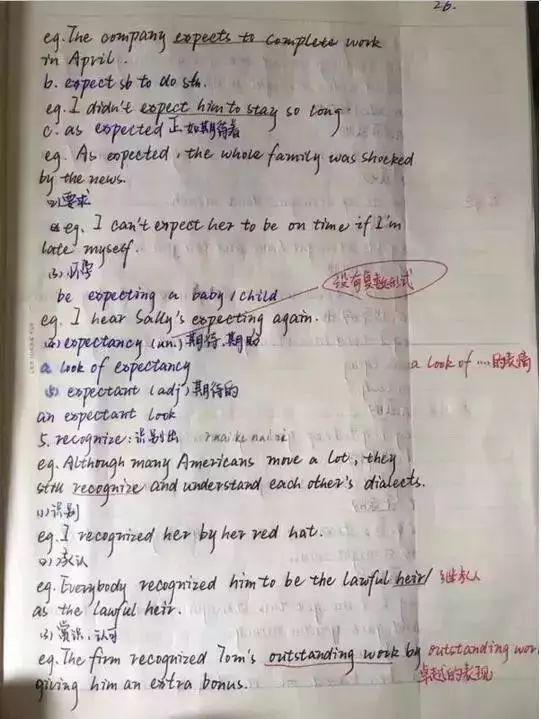 26.
eg. The company expects to complete work
in April.
b. expect sb to do sth.
eg. I didn't expect him to stay so long.
c. as expected 正如期待着
eg. As expected, the whole family was shocked
by the news.
(2)要求
eg. I can't expect her to be on time if I'm
late myself.
(3)怀孕
be expecting a baby/child
没有复数形式
eg. I hear Sally's expecting again.
expectancy (un.) 期待,期盼
a look of expectancy
a look of .... 的表情
expectant (adj) 期待的
an expectant look
5. recognize: 识别出
eg. Although many Americans move a lot, they
still recognize and understand each other's dialects.
(1)识别
eg. I recognized her by her red hat.
(2)承认
eg. Everybody recognized him to be the lawful heir/ 继承人
as the lawful heir.
(3)赏识,认可
eg. The firm recognized Tom's outstanding work by outstanding wor
giving him an extra bonus. 卓越的表现